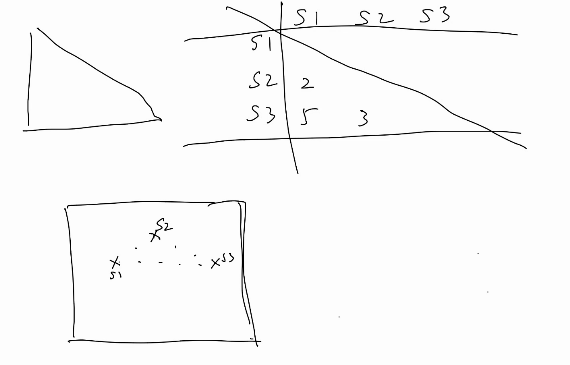 S1 S2 S3
S1
S2 2
S3 5 3
S2
S1
S3